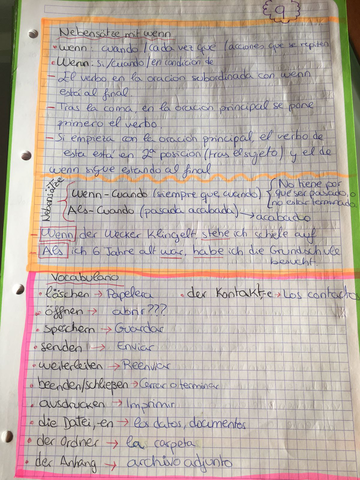 9
Nebensätze mit wenn
• wenn: cuando/cada vez que (acciones que se repiten
• Wenn: Si/cuando/en condición de
– El verbo en la oración subordinada con wenn
está al final
– Tras la coma, en la oración principal se pone
primero el verbo
– Si empieza con la oración principal, el verbo de
esta está en 2ª posición (tras el sujeto) y el de
wenn sigue estando al final
Nebensätze
Wenn - Cuando (siempre que, cuando)
No tiene por
que ser pasado o
no estar terminado
Als - Cuando (pasado acabado) → acabado
– Wenn der Wecker klingelt, stehe ich schlefe auf
– Als ich 6 Jahre alt war, habe ich die Grundschule
besucht
Vocabulario
• löschen → Papelera • der Kontakt-e → Los contactos
• öffnen → abrir???
• speichern → Guardar
• senden → Enviar
• weiterleiten → Reenviar
• beenden/schließen → Cerrar o terminar
• ausdrucken → Imprimir
• die Datei, -en → los datos, documentos
• der Ordner → la carpeta
• der Anhang → archivo adjunto